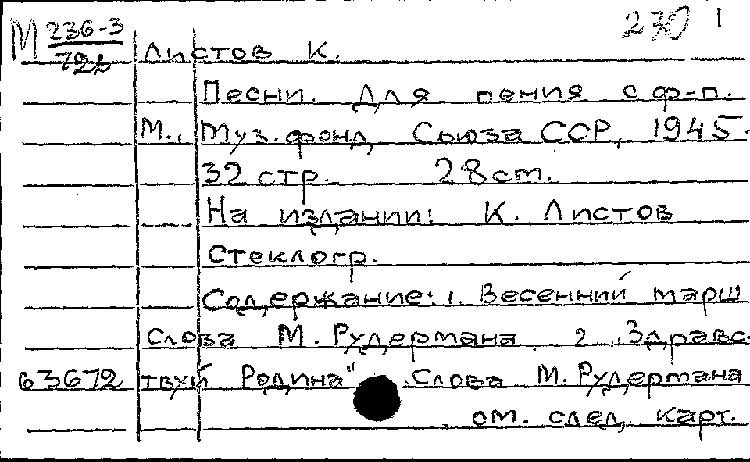 М 236-3 230 1
72 Листов К.
Песни. Для пения с ф-п.
М., Муз. фонд Союза ССР, 1945.
32 стр. 28 ст.
На издании: К. Листов
Стеклогр.
Содержание: 1. Весенний марш
Слова М. Рудермана 2. „Здравс-
63672 твуй Родина" Слова М. Рудермана
см. след. карт.